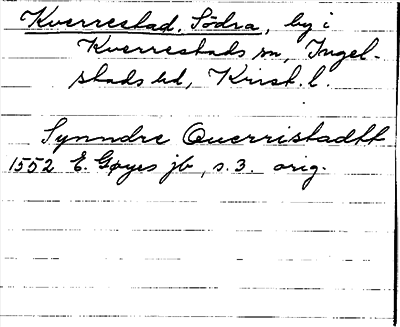 Kverrestad, Södra, by i
Kverrestads sn, Ingel-
stads hd, Krist. l.
Synndre Querristadtt
1552 E. Gøyes jb, s. 3. orig.